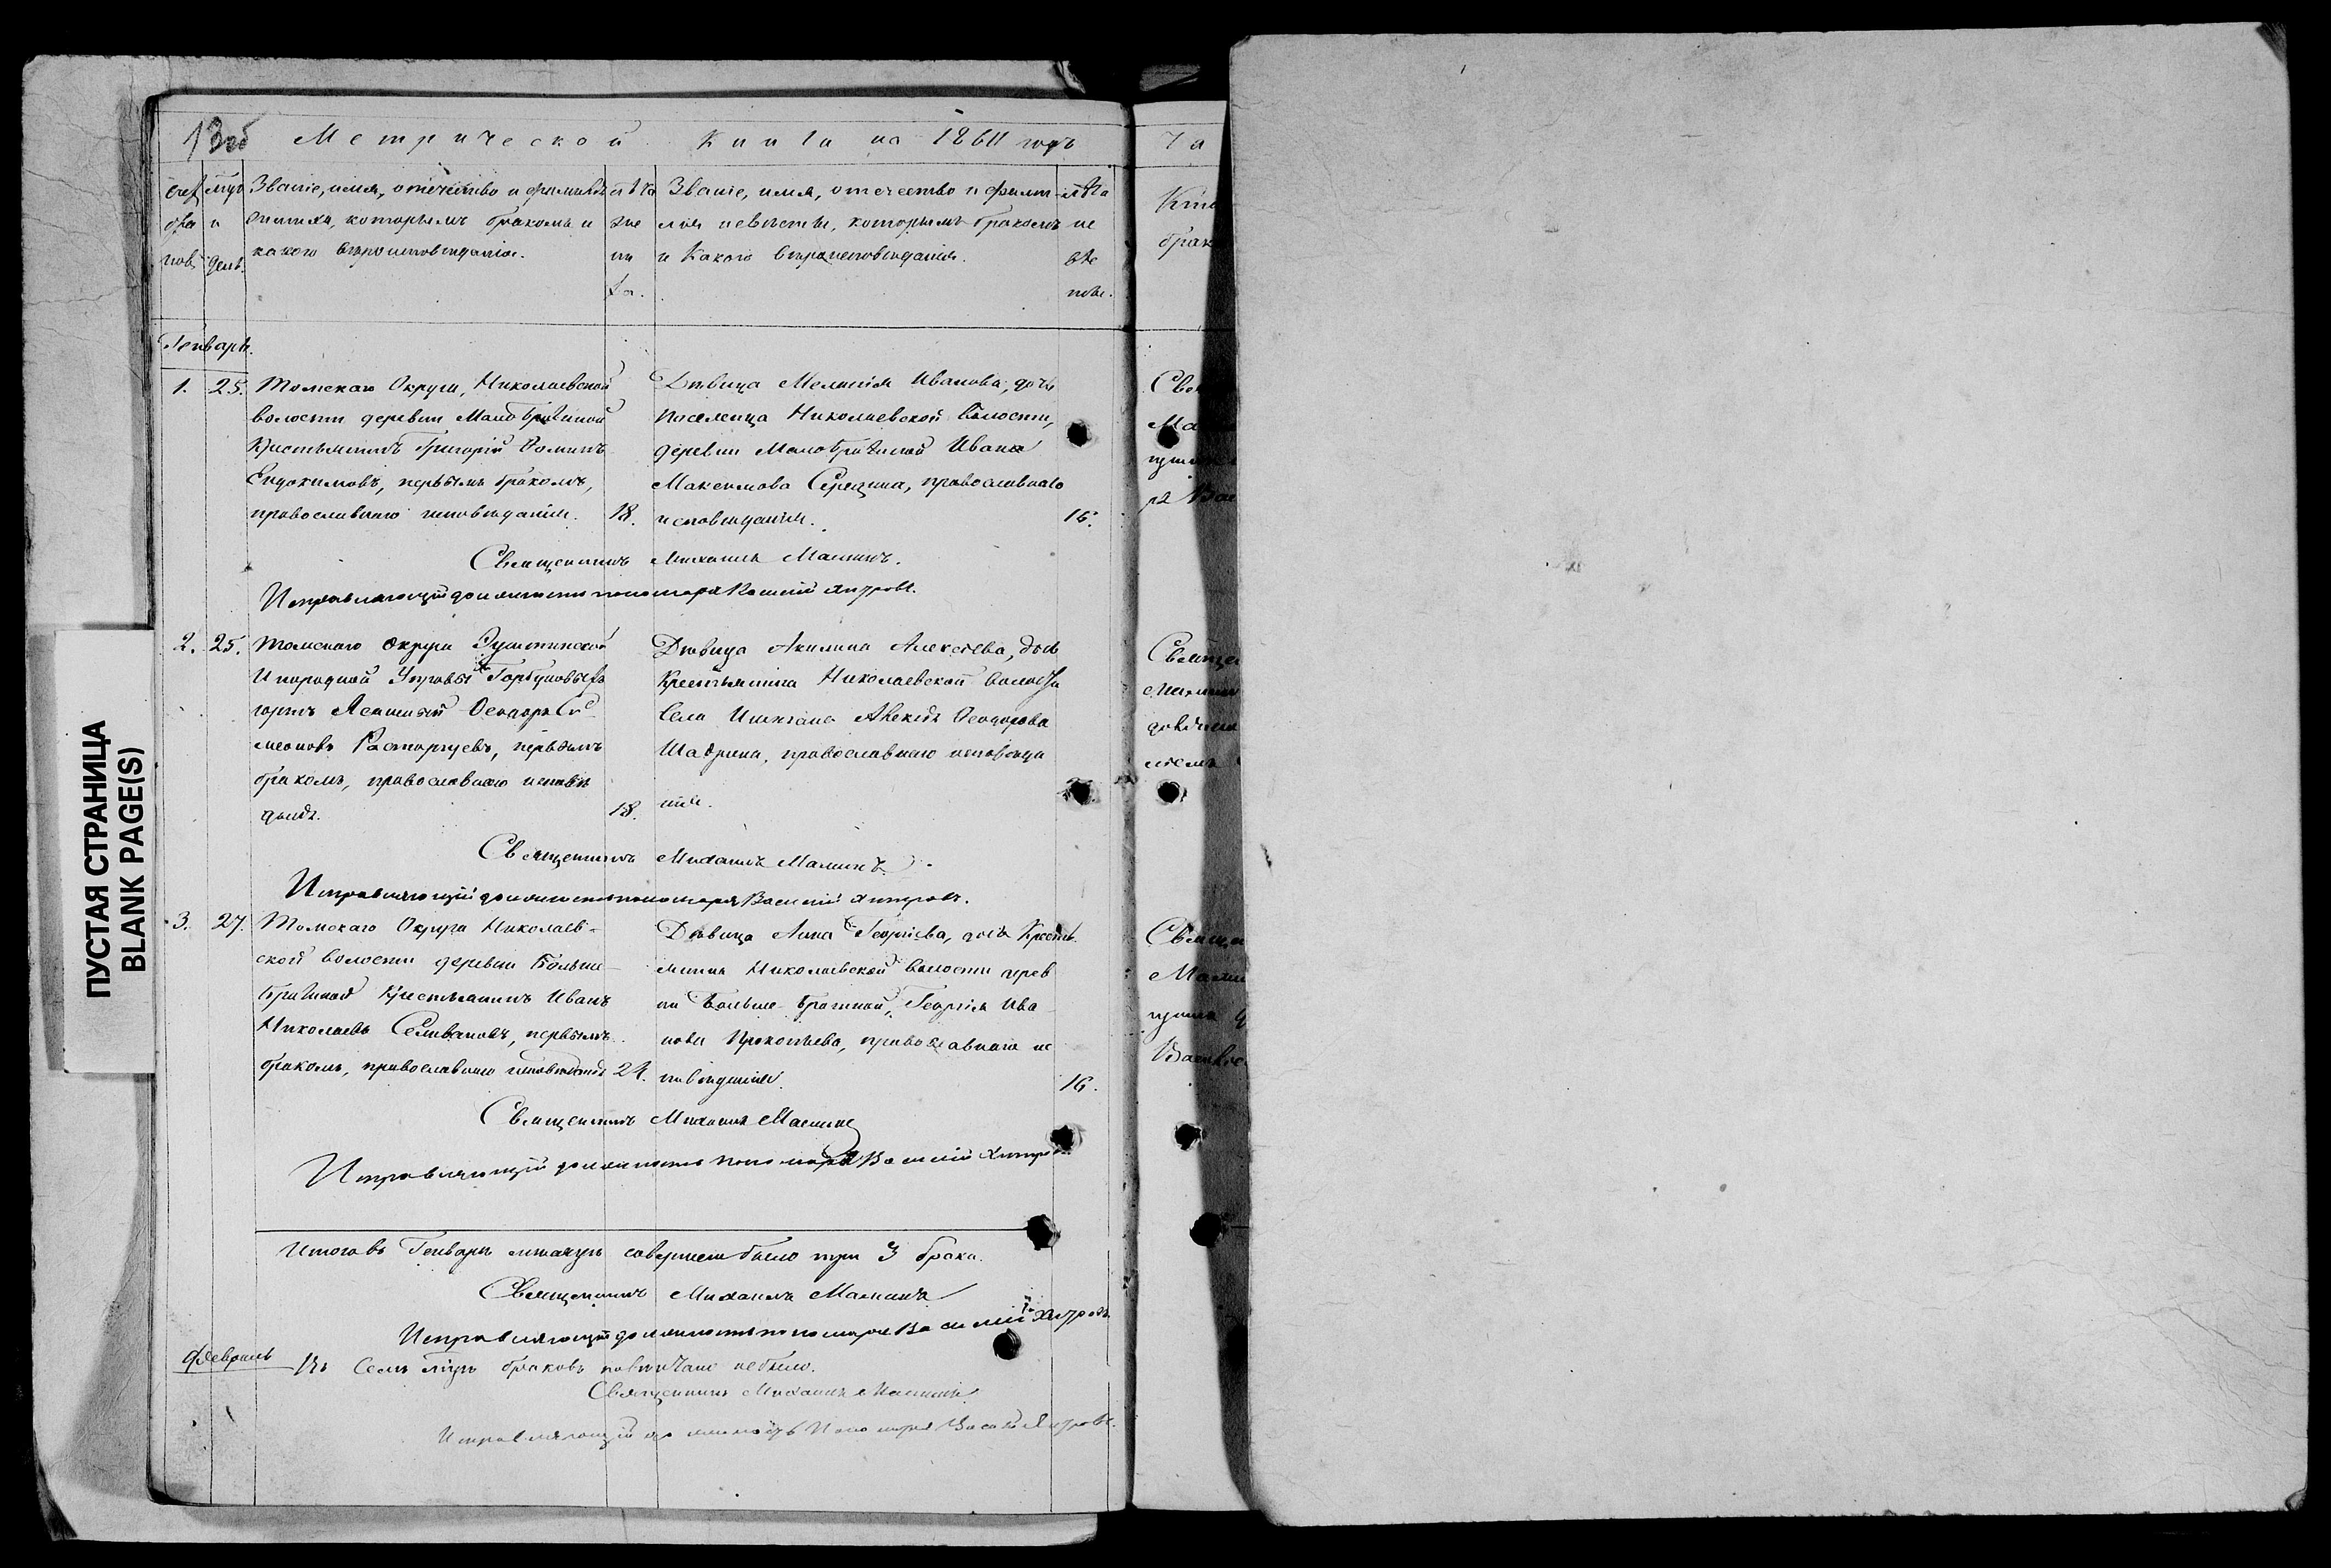 13об Метрической Книги на 1861 годъ
Счет бра ков
мцъ и день.
Званіе, имя, отечество и фамилія
жениха, которымъ бракомъ и
какого вѣроисповѣданія.
лѣта же ни ха.
Званіе, имя, отечество и фами-
лія невѣсты, которымъ бракомъ
и какого вѣроисповѣданія.
лѣта не вѣс ты.
Генварь.
1. 25.
Томскаго Округа, Николаевской
волости деревни Малобрагиной
Крестьянинъ Григорій Фоминъ
Евдокимовъ, первымъ бракомъ,
православнаго исповѣданія. 18.
Дѣвица Меланія Иванова, дочь
Поселенца Николаевской волости,
деревни Малобрагиной Ивана
Максимова Середина, православнаго
исповѣданія. 16.
Священникъ Михаилъ Малинъ.
Исправляющій должность пономаря Василій Хитровъ.
2. 25.
Томскаго Округа
Инородной Управы Горбуновыхъ
юртъ Ясашный Ѳеодоръ Си-
меоновъ Расторгуевъ, первымъ
бракомъ, православнаго исповѣ
данія. 18.
Дѣвица Акилина Алексѣева, дочь
Крестьянина Николаевской волости
Села Алексѣя Ѳеодорова
Шадрина, православнаго исповѣда
нія.
Священникъ Михаилъ Малинъ.
Исправляющій должность пономаря Василій Хитровъ.
3. 27.
Томскаго Округа Николаев-
ской волости деревни Больше-
брагиной Крестьянинъ Иванъ
Николаевъ Селивановъ, первымъ
бракомъ, православнаго исповѣданія 21.
Дѣвица Анна Георгіева, дочь Кресть
янина Николаевской волости дерев
ни Больше-брагиной, Георгія Ива
нова Прокопьева, православнаго ис
повѣданія. 16.
Священникъ Михаилъ Малинъ
Исправляющій должность пономаря Василій Хитровъ
Итого въ Генварѣ мѣсяцѣ совершено было три 3 брака.
Священникъ Михаилъ Малинъ
Исправляющій должность пономаря Василій Хитровъ
Февраль
Въ семъ мцѣ браковъ повѣнчано не было.
Священникъ Михаилъ Малинъ
Исправляющій должность Пономаря Василій Хитровъ.
ПУСТАЯ СТРАНИЦА
BLANK PAGE(S)